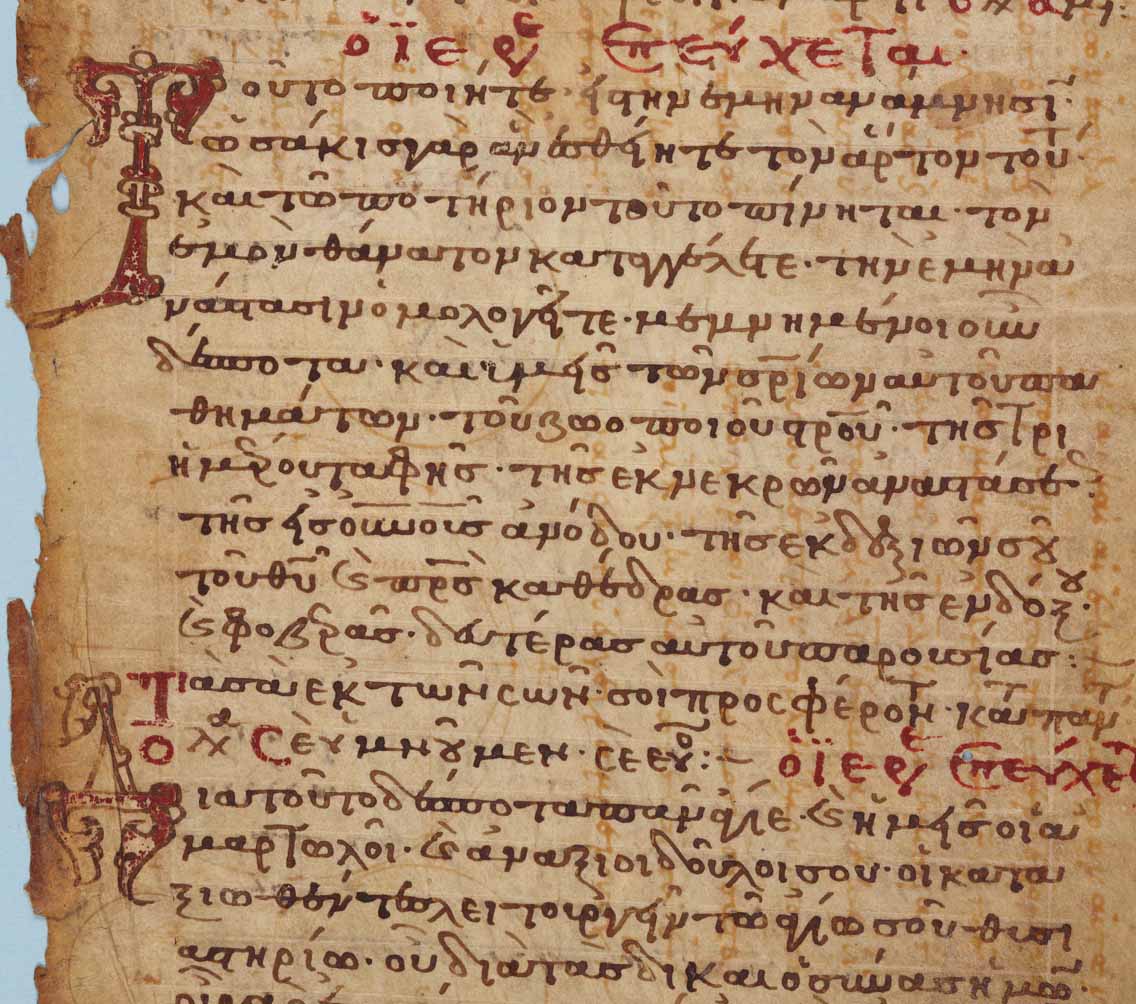 ὁ ἱερ ἐπεύχεται
Τοῦτο ποιῆτε εἰς τὴν ἐμὴν ἀνάμνησι
ὡσάκις γὰρ ἂν ἐσθίητε τὸν ἄρτον τοῦτ
καὶ τῶ ποτήριον τοῦτο πίνηται· τὸν
ἐμὸν θάνατον καταγγέλετε· τὴν ἐμὴν ἀ
νάστασιν ὁμολογεῖτε· μεμνημένοι οὖν
δέσποτα· καὶ ἡμεῖς τῶν σρίων αὐτοῦ πα
θημάτων· τοῦ ζωοποιοῦ σροῦ· τῆς τρι
ημέρου ταφῆς· τῆς ἐκ νεκρῶν ἀναστάσε
τῆς εἰς οὐνοὺς ἀνόδου· τῆς ἐκ δεξιῶν σοῦ
τοῦ θῦ καὶ πρς καθέδρας· καὶ τῆς ἐνδόξου
καὶ φοβερᾶς· δευτέρας αὐτοῦ παρουσίας:
Τὰ σὰ ἐκ τῶν σῶν· σοὶ προσφέροντ· κατ πάντ
ὁ χ Σὲ ὑμνοῦμεν· σὲ εὐ:– ὁ ἱερ ἐπεύχετ
Διὰ τοῦτο δέσποτα πανάγιε· καὶ ἡμεῖς οἱ ἁ
μαρτωλοὶ· καὶ ἀνάξιοι δοῦλοι σου· οἱ κατα
ξιωθέντες λειτουργεῖν τῶ ἁγίω σοῦ θυσι
αστηρίω· οὐ διὰ τὰς δικαιοσύνας ἡμῶν·